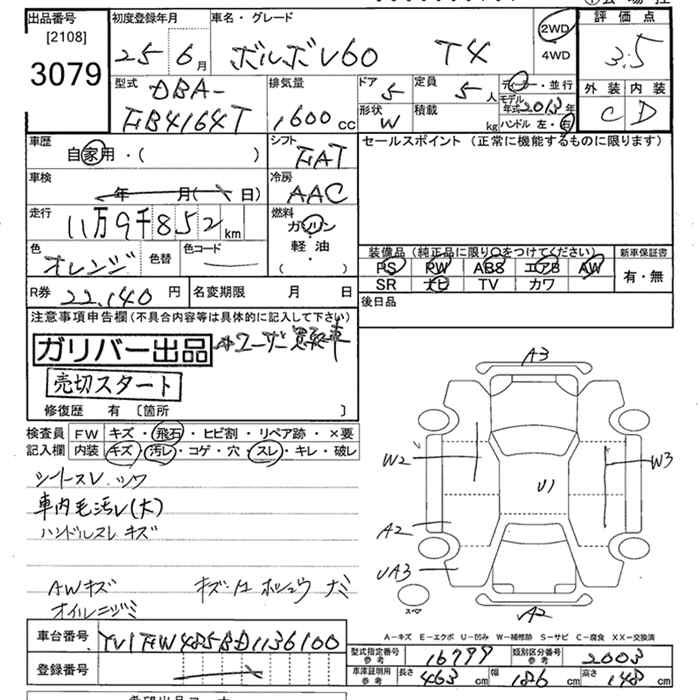 出品番号 初度登録年月 車名・グレード 評価点
[2108] 2WD 3.5
3079 25 6月 ボルボV60 T4 4WD
型式 排気量 ドア 定員 ディーラー・並行 外装 内装
DBA- 5 5人 モデル年式 2013年 C D
FB4164T 1600cc 形状 W 積載 kg ハンドル 左・右
車歴 シフト セールスポイント (正常に機能するものに限ります)
自家用・( ) FAT
車検 冷房
年 月( 日) AAC
走行 燃料
11万9千852km ガソリン
色 色替 色コード 軽油 装備品(純正品に限り○をつけてください) 新車保証書
オレンジ ( ・ ) PS PW ABS エアB AW 有・無
SR ナビ TV カワ
R券 22,140円 名変期限 月 日 後日品
注意事項申告欄(不具合内容等は具体的に記入して下さい)
ガリバー出品 ユーザー買取車
売切スタート
修復歴 有 〔箇所 〕
検査員 FW キズ・飛石・ヒビ割・リペア跡・×要
記入欄 内装 キズ・汚レ・コゲ・穴・スレ・キレ・破レ
シートスレ シワ
車内毛汚レ(大)
ハンドルスレ キズ
AWキズ
オイルニジミ
A3
W2
W3
U1
A2
UA3
スペア
UA2
A-キズ E-エクボ U-凹み W-補修跡 S-サビ C-腐食 XX-交換済
車台番号 YV1FW485BD1136100 型式指定番号 参考 16799 類別区分番号 参考 2003
登録番号 車庫証明用 参考 長さ 463cm 幅 186cm 高さ 148cm